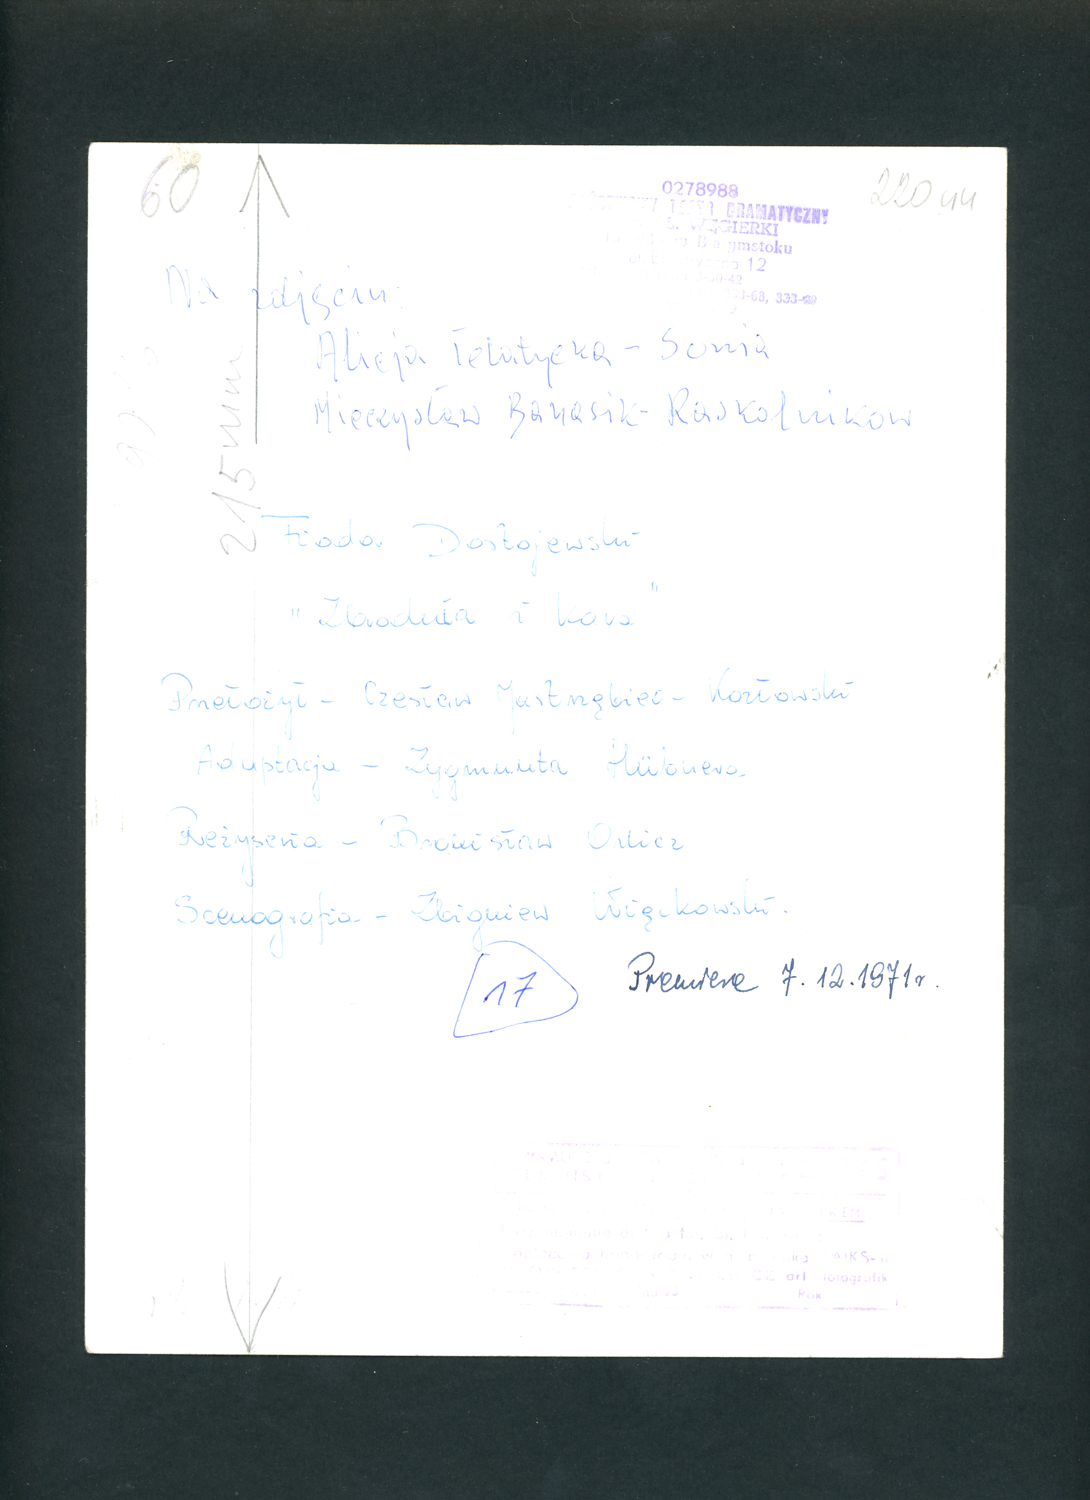 60
220 mm
0278988
DRAMATYCZNY
WĘGIERKI
12
333-
Na zdjęciu:
Alicja Telatycka - Sonia
Mieczysław Banasik - Raskolnikow
215 mm
Fiodor Dostojewski
"Zbrodnia i Kara"
Przełożył - Czesław Jastrzębiec - Kozłowski
Adaptacja - Zygmunta Hübnera
Reżyseria - Bronisław Orlicz
Scenografia - Zbigniew Więckowski.
17
Premiera 7.12.1971r.
art fotografik
Rok